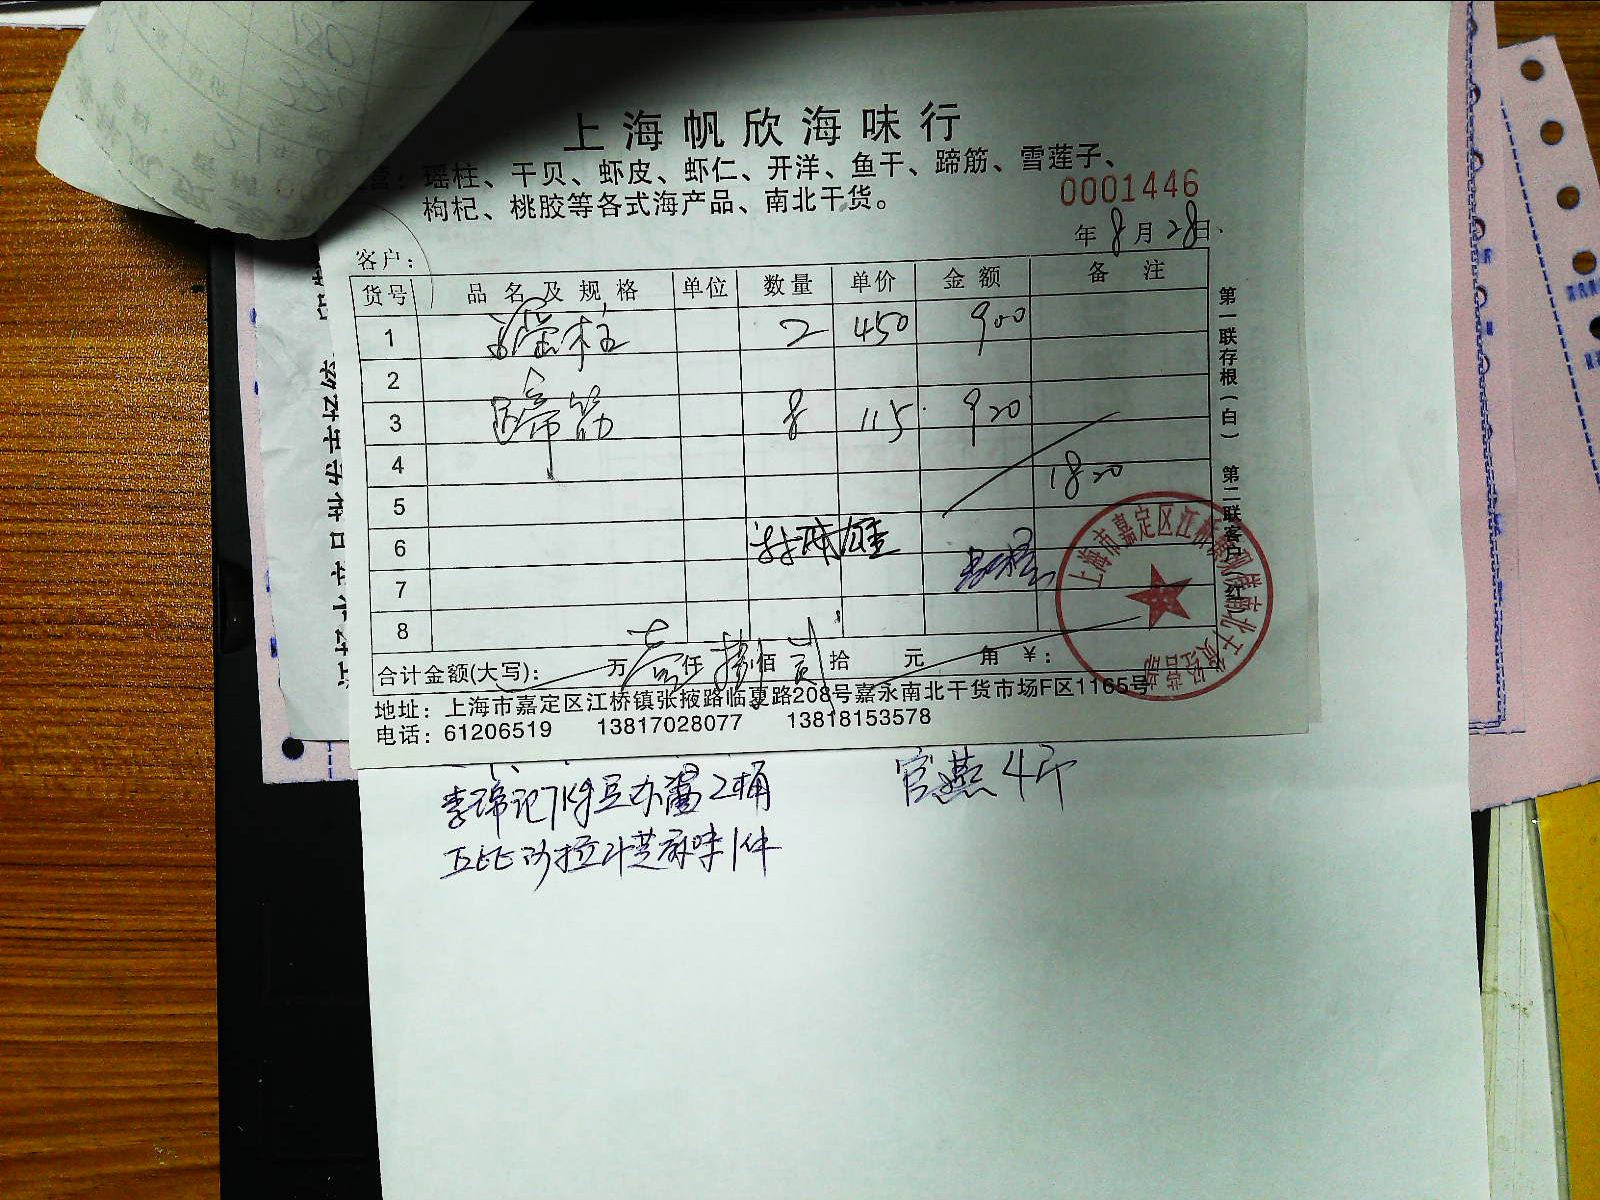 上海帆欣海味行
营：瑶柱、干贝、虾皮、虾仁、开洋、鱼干、蹄筋、雪莲子、
枸杞、桃胶等各式海产品、南北干货。
0001446
年 8 月 28 日
客户：
货号 品名及规格 单位 数量 单价 金额 备注
1 瑶柱 2 450 900
2
3 蹄筋 8 115 920
4 1820
5
6
7
8
合计金额(大写)： 万 壹仟 捌佰 贰拾 元 角 ￥：
地址：上海市嘉定区江桥镇张掖路临夏路208号嘉永南北干货市场F区1165号
电话：61206519 13817028077 13818153578
第一联存根(白) 第二联客户(红)
李锦记7kg豆办酱2桶
官燕4斤
丘比沙拉汁芝麻味1件